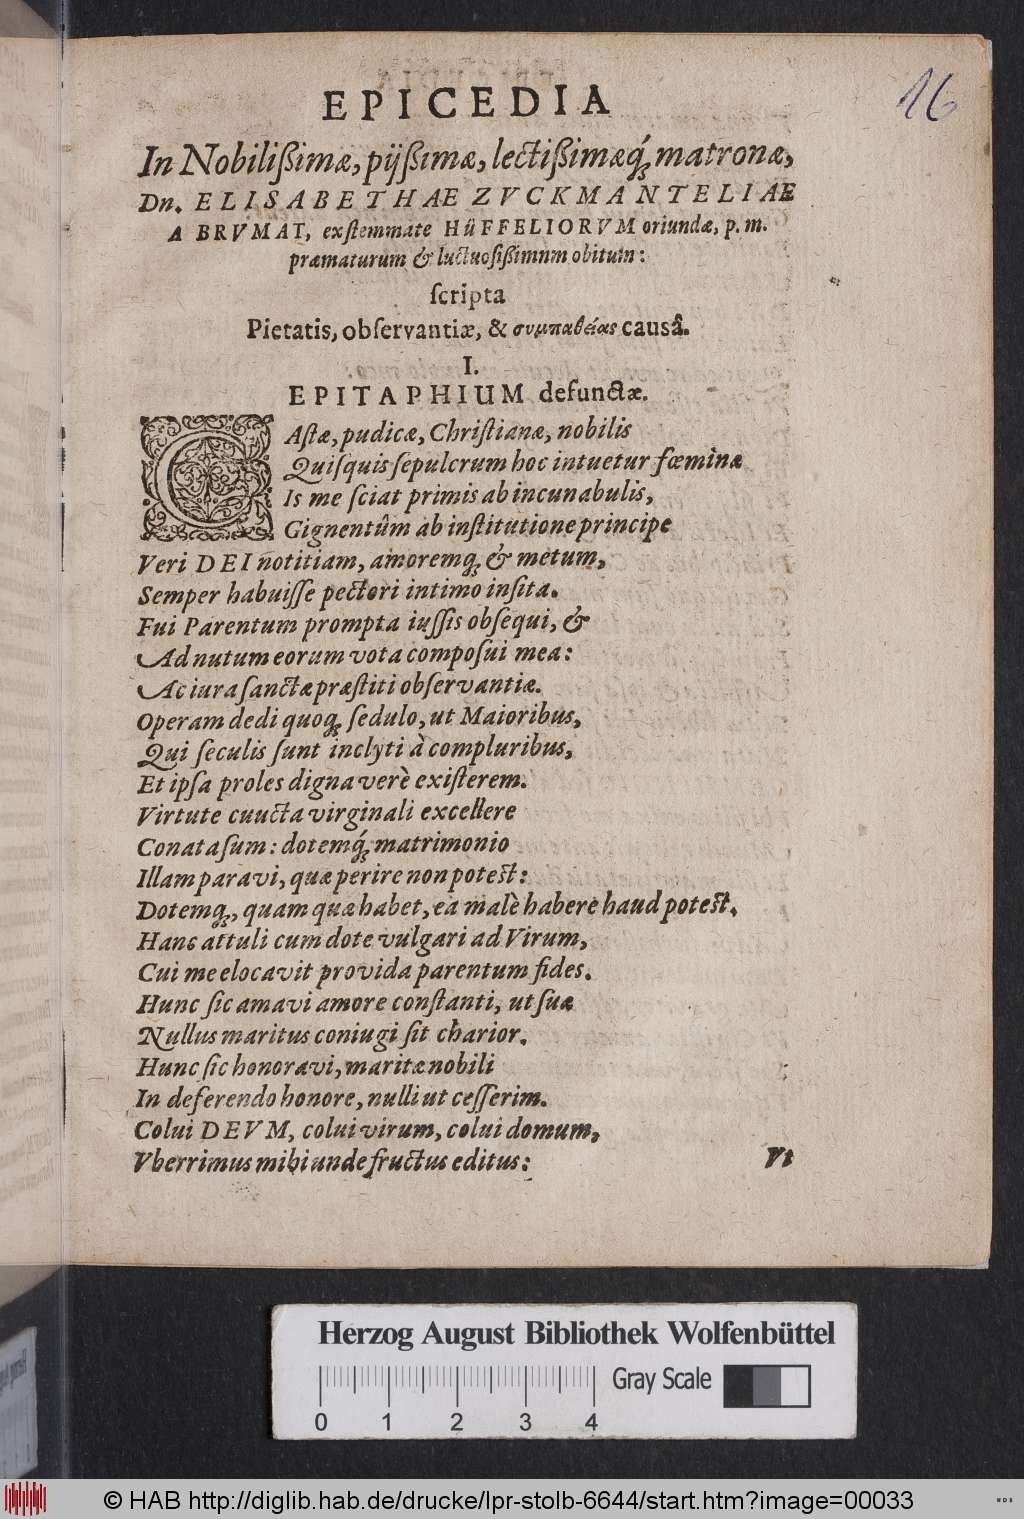 16
EPICEDIA
In Nobilißimæ, pijßimæ, lectißimæq́ꝫ matronæ,
Dn. ELISABETHAE ZVCKMANTELIAE
A BRVMAT, exſtemmate HüFFELIORVM oriundæ, p. m.
præmaturum & luctuoſißimnm obitum:
ſcripta
Pietatis, obſervantiæ, & συμπαθείας causâ.
I.
EPITAPHIUM defunctæ.
CAſtæ, pudicæ, Chriſtianæ, nobilis
Quiſquis ſepulcrum hoc intuetur fœminæ
Is me ſciat primis ab incunabulis,
Gignentûm ab inſtitutione principe
Veri DEI notitiam, amoremqꝫ & metum,
Semper habuiſſe pectori intimo inſita.
Fui Parentum prompta iuſſis obſequi, &
Ad nutum eorum vota compoſui mea:
Ac iura ſanctæ præſtiti obſervantiæ.
Operam dedi quoqꝫ ſedulo, ut Maioribus,
Qui ſeculis ſunt inclyti à compluribus,
Et ipſa proles digna verè exiſterem.
Virtute cuucta virginali excellere
Conata ſum: dotemq́ꝫ matrimonio
Illam paravi, quæ perire non poteſt:
Dotemqꝫ, quam quæ habet, ea malè habere haud poteſt.
Hanc attuli cum dote vulgari ad Virum,
Cui me elocavit provida parentum fides.
Hunc ſic amavi amore conſtanti, ut ſuæ
Nullus maritus coniugi ſit charior.
Hunc ſic honoravi, maritæ nobili
In deferendo honore, nulli ut ceſſerim.
Colui DEVM, colui virum, colui domum,
Vberrimus mihi unde fructus editus:
Vt
Herzog August Bibliothek Wolfenbüttel
Gray Scale
0 1 2 3 4
© HAB http://diglib.hab.de/drucke/lpr-stolb-6644/start.htm?image=00033